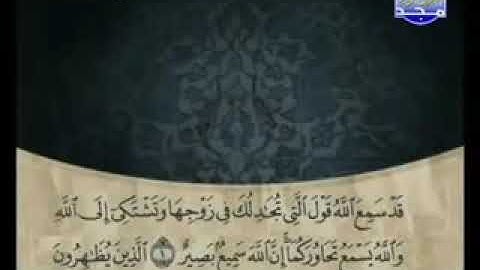 مجد
قَدْ سَمِعَ ٱللَّهُ قَوْلَ ٱلَّتِي تُجَٰدِلُكَ فِي زَوْجِهَا وَتَشْتَكِيٓ إِلَى ٱللَّهِ
وَٱللَّهُ يَسْمَعُ تَحَاوُرَكُمَآ إِنَّ ٱللَّهَ سَمِيعٌۢ بَصِيرٌ ١ ٱلَّذِينَ يُظَٰهِرُونَ